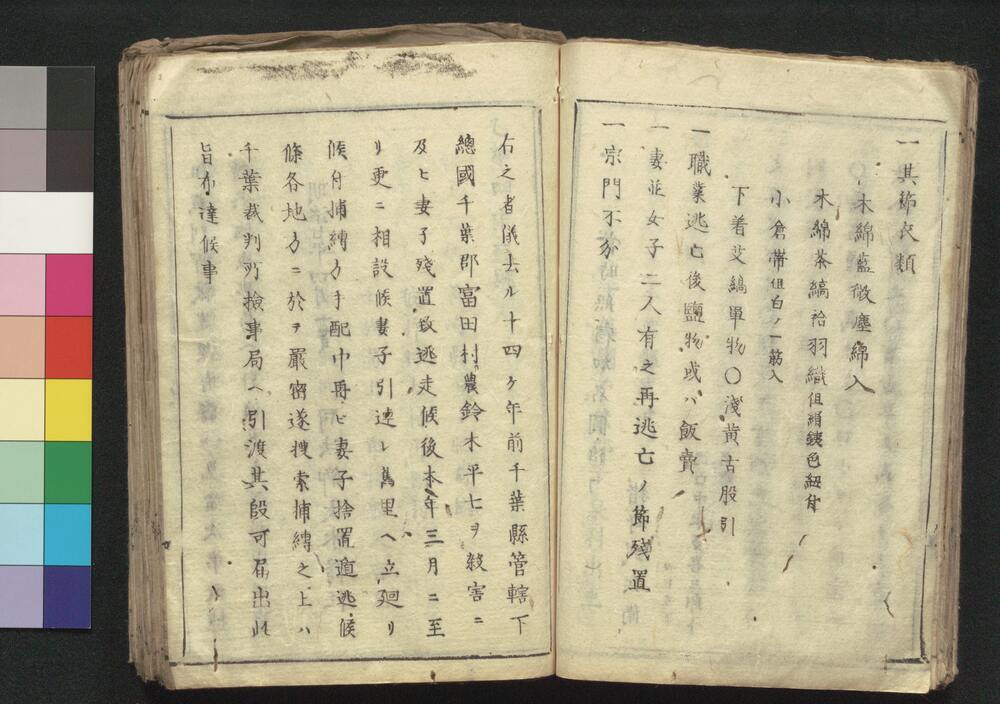 一其節衣類
木綿藍微塵綿入
木綿茶縞袷羽織但絹銕色紐付
小倉帯但白ノ一筋入
下着艾縞単物〇浅黄古股引
一職業逃亡後鹽物或ハ飯賣
一妻並女子二人有之再逃亡ノ節残置
一宗門不分
右之者儀去ル十四ヶ年前千葉縣管轄下
總國千葉郡富田村農鈴木平七ヲ殺害ニ
及ヒ妻子残置致逃走候後本年三月ニ至
リ更ニ相設候妻子引連レ舊里ヘ立廻リ
候付捕縛方手配中再ヒ妻子捨置遁逃候
條各地方ニ於テ嚴密遂捜索捕縛之上ハ
千葉裁判所撿事局ヘ引渡其段可届出此
旨布達候事